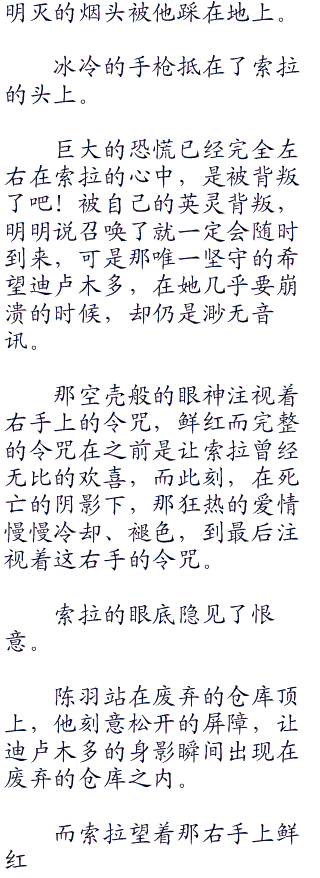 明灭的烟头被他踩在地上。
冰冷的手枪抵在了索拉
的头上。
巨大的恐慌已经完全左
右在索拉的心中，是被背叛
了吧！被自己的英灵背叛，
明明说召唤了就一定会随时
到来，可是那唯一坚守的希
望迪卢木多，在她几乎要崩
溃的时候，却仍是渺无音
讯。
那空壳般的眼神注视着
右手上的令咒，鲜红而完整
的令咒在之前是让索拉曾经
无比的欢喜，而此刻，在死
亡的阴影下，那狂热的爱情
慢慢冷却、褪色，到最后注
视着这右手的令咒。
索拉的眼底隐见了恨
意。
陈羽站在废弃的仓库顶
上，他刻意松开的屏障，让
迪卢木多的身影瞬间出现在
废弃的仓库之内。
而索拉望着那右手上鲜
红